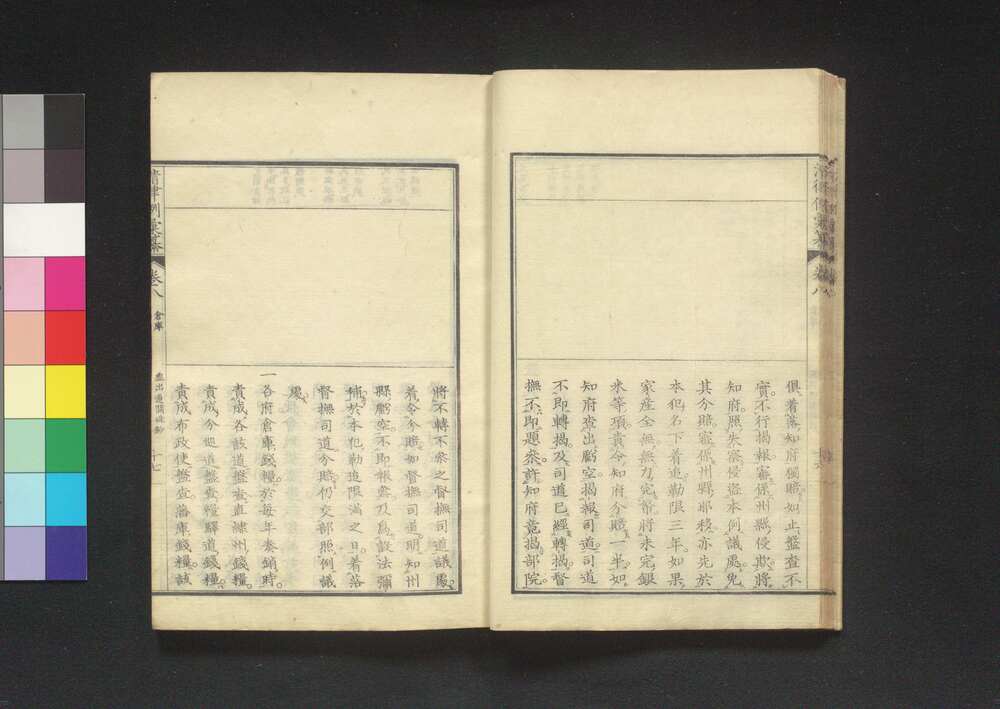 俱着落知府獨賠如止盤查不
實不行揭報審係州縣侵欺將
知府照失察侵盜本例議處免
其分賠審係州縣那移亦先於
本犯名下着追勒限三年如果
家産全無無力完帑將未完銀
米等項責令知府分賠一半如
知府查出虧空揭報司道司道
不即轉揭及司道已經轉揭督
撫不即題叅許知府竟揭部院
將不轉不叅之督撫司道議處
着令分賠如督撫司道明知州
縣虧空不即報露及爲設法彌
補於本犯勒追限滿之日着落
督撫司道分賠仍交部照例議
處
一各府倉庫錢糧於每年奏銷時
責成各該道盤查直隷州錢糧
責成分巡道盤查糧驛道錢糧
責成布政使盤查藩庫錢糧該
清律例彙纂 卷八 倉庫 虛出通關硃鈔 十七